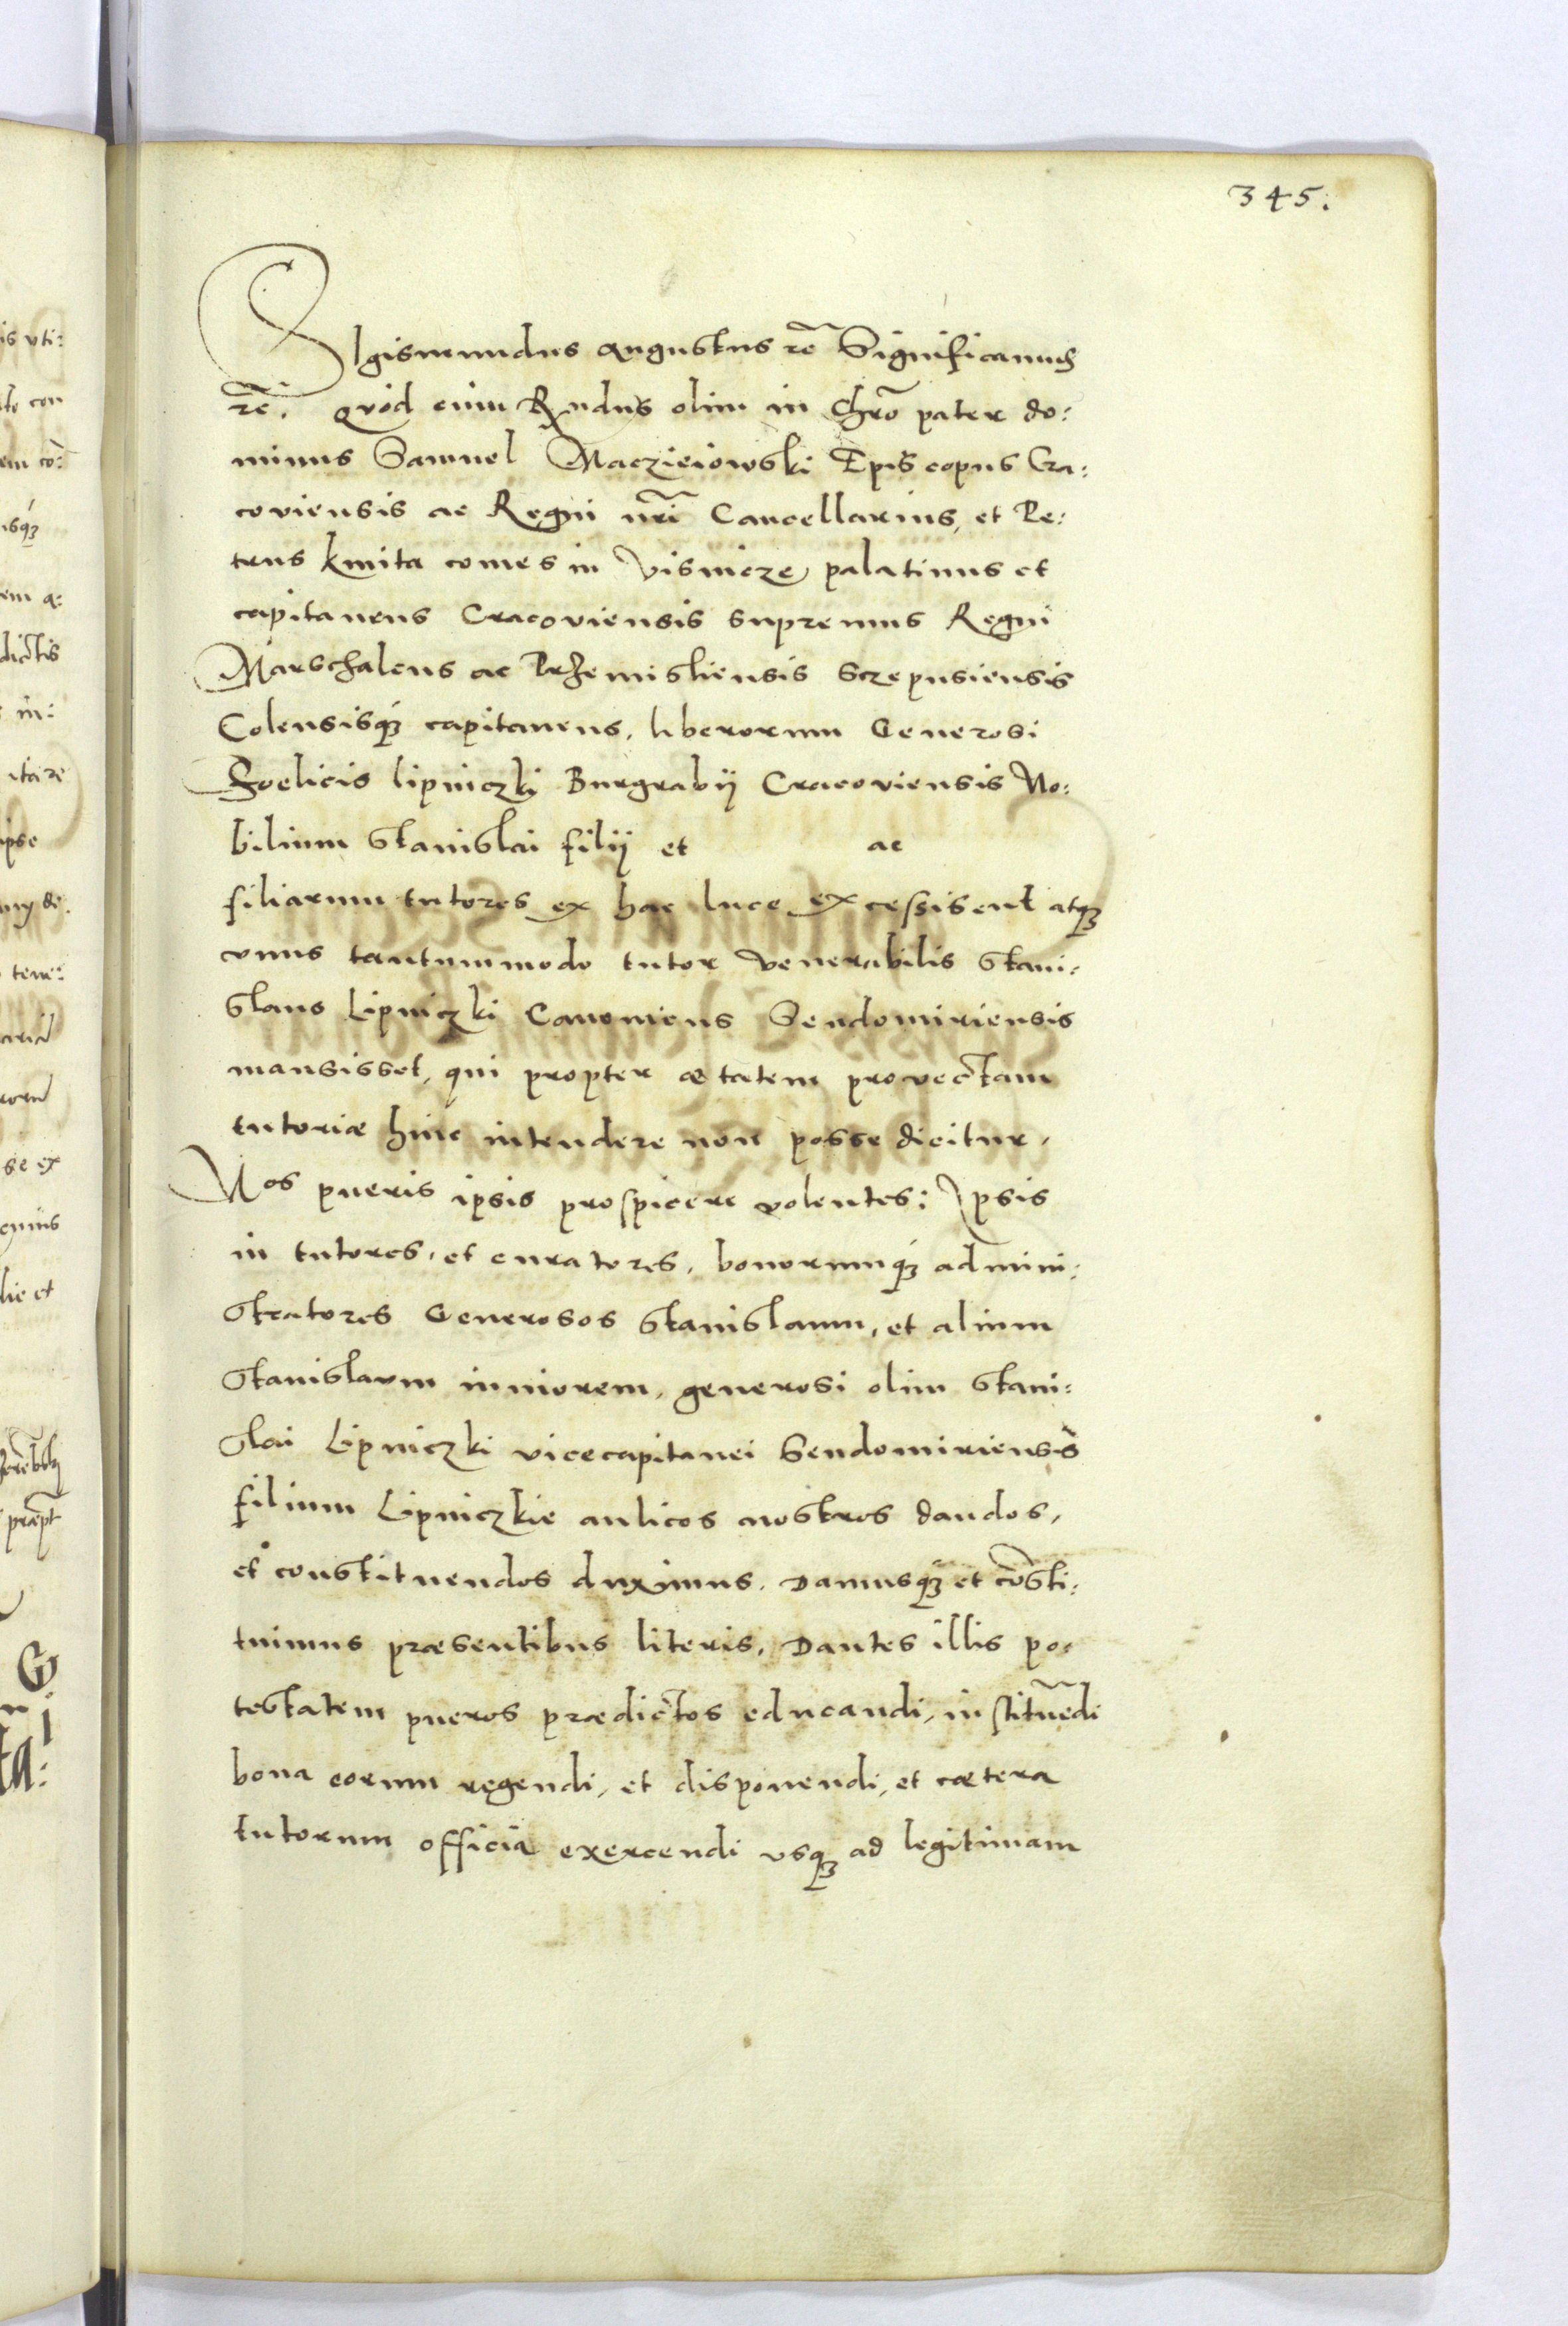 345.
SIgismundus Augustus rẽ Significamus
rẽ. Quod cum Rndus olim in Chro pater do:
minus Samuel Maczieiowski Episcopus Cra:
coviensis ac Regni nri Cancellarius, et Pe:
trus kmita comes in Visnicze palatinus et
capitaneus Cracoviensis supremus Regni
Marschalcus ac Przemisliensis Sczepusiensis
Colensisq3 capitaneus, liberorum Generosi
Foelicis lipniczki Burgrabij Cracoviensis No:
bilium Stanislai filij et ac
filiarum tutores ex hac luce excessisent atq3
vnus tantummodo tutor venerabilis Stani:
slaus Lipniczki Canonicus Sendomiriensis
mansisset, qui propter ætatem provectam
tutoriæ huic intendere non posse dicitur.
Nos pueris ipsis prospicere volentes: Ipsis
in tutores, et curatores, bonorumq3 admini:
stratores Generosos Stanislaum, et alium
Stanislaum iuniorem, generosi olim Stani:
slai Lipniczki vicecapitanei Sendomiriensis
filium Lipniczkie aulicos nostros dandos,
et constituendos duximus. Damusq3 et cõsti:
tuimus præsentibus literis, Dantes illis po:
testatem pueros prædictos educandi, instituẽdi
bona eorum regendi, et disponendi, et cætera
tutorum officia exercendi vsq3 ad legitimam
is vti:
em a:
dictis
in:
ipse
tene:
se ex
lie et